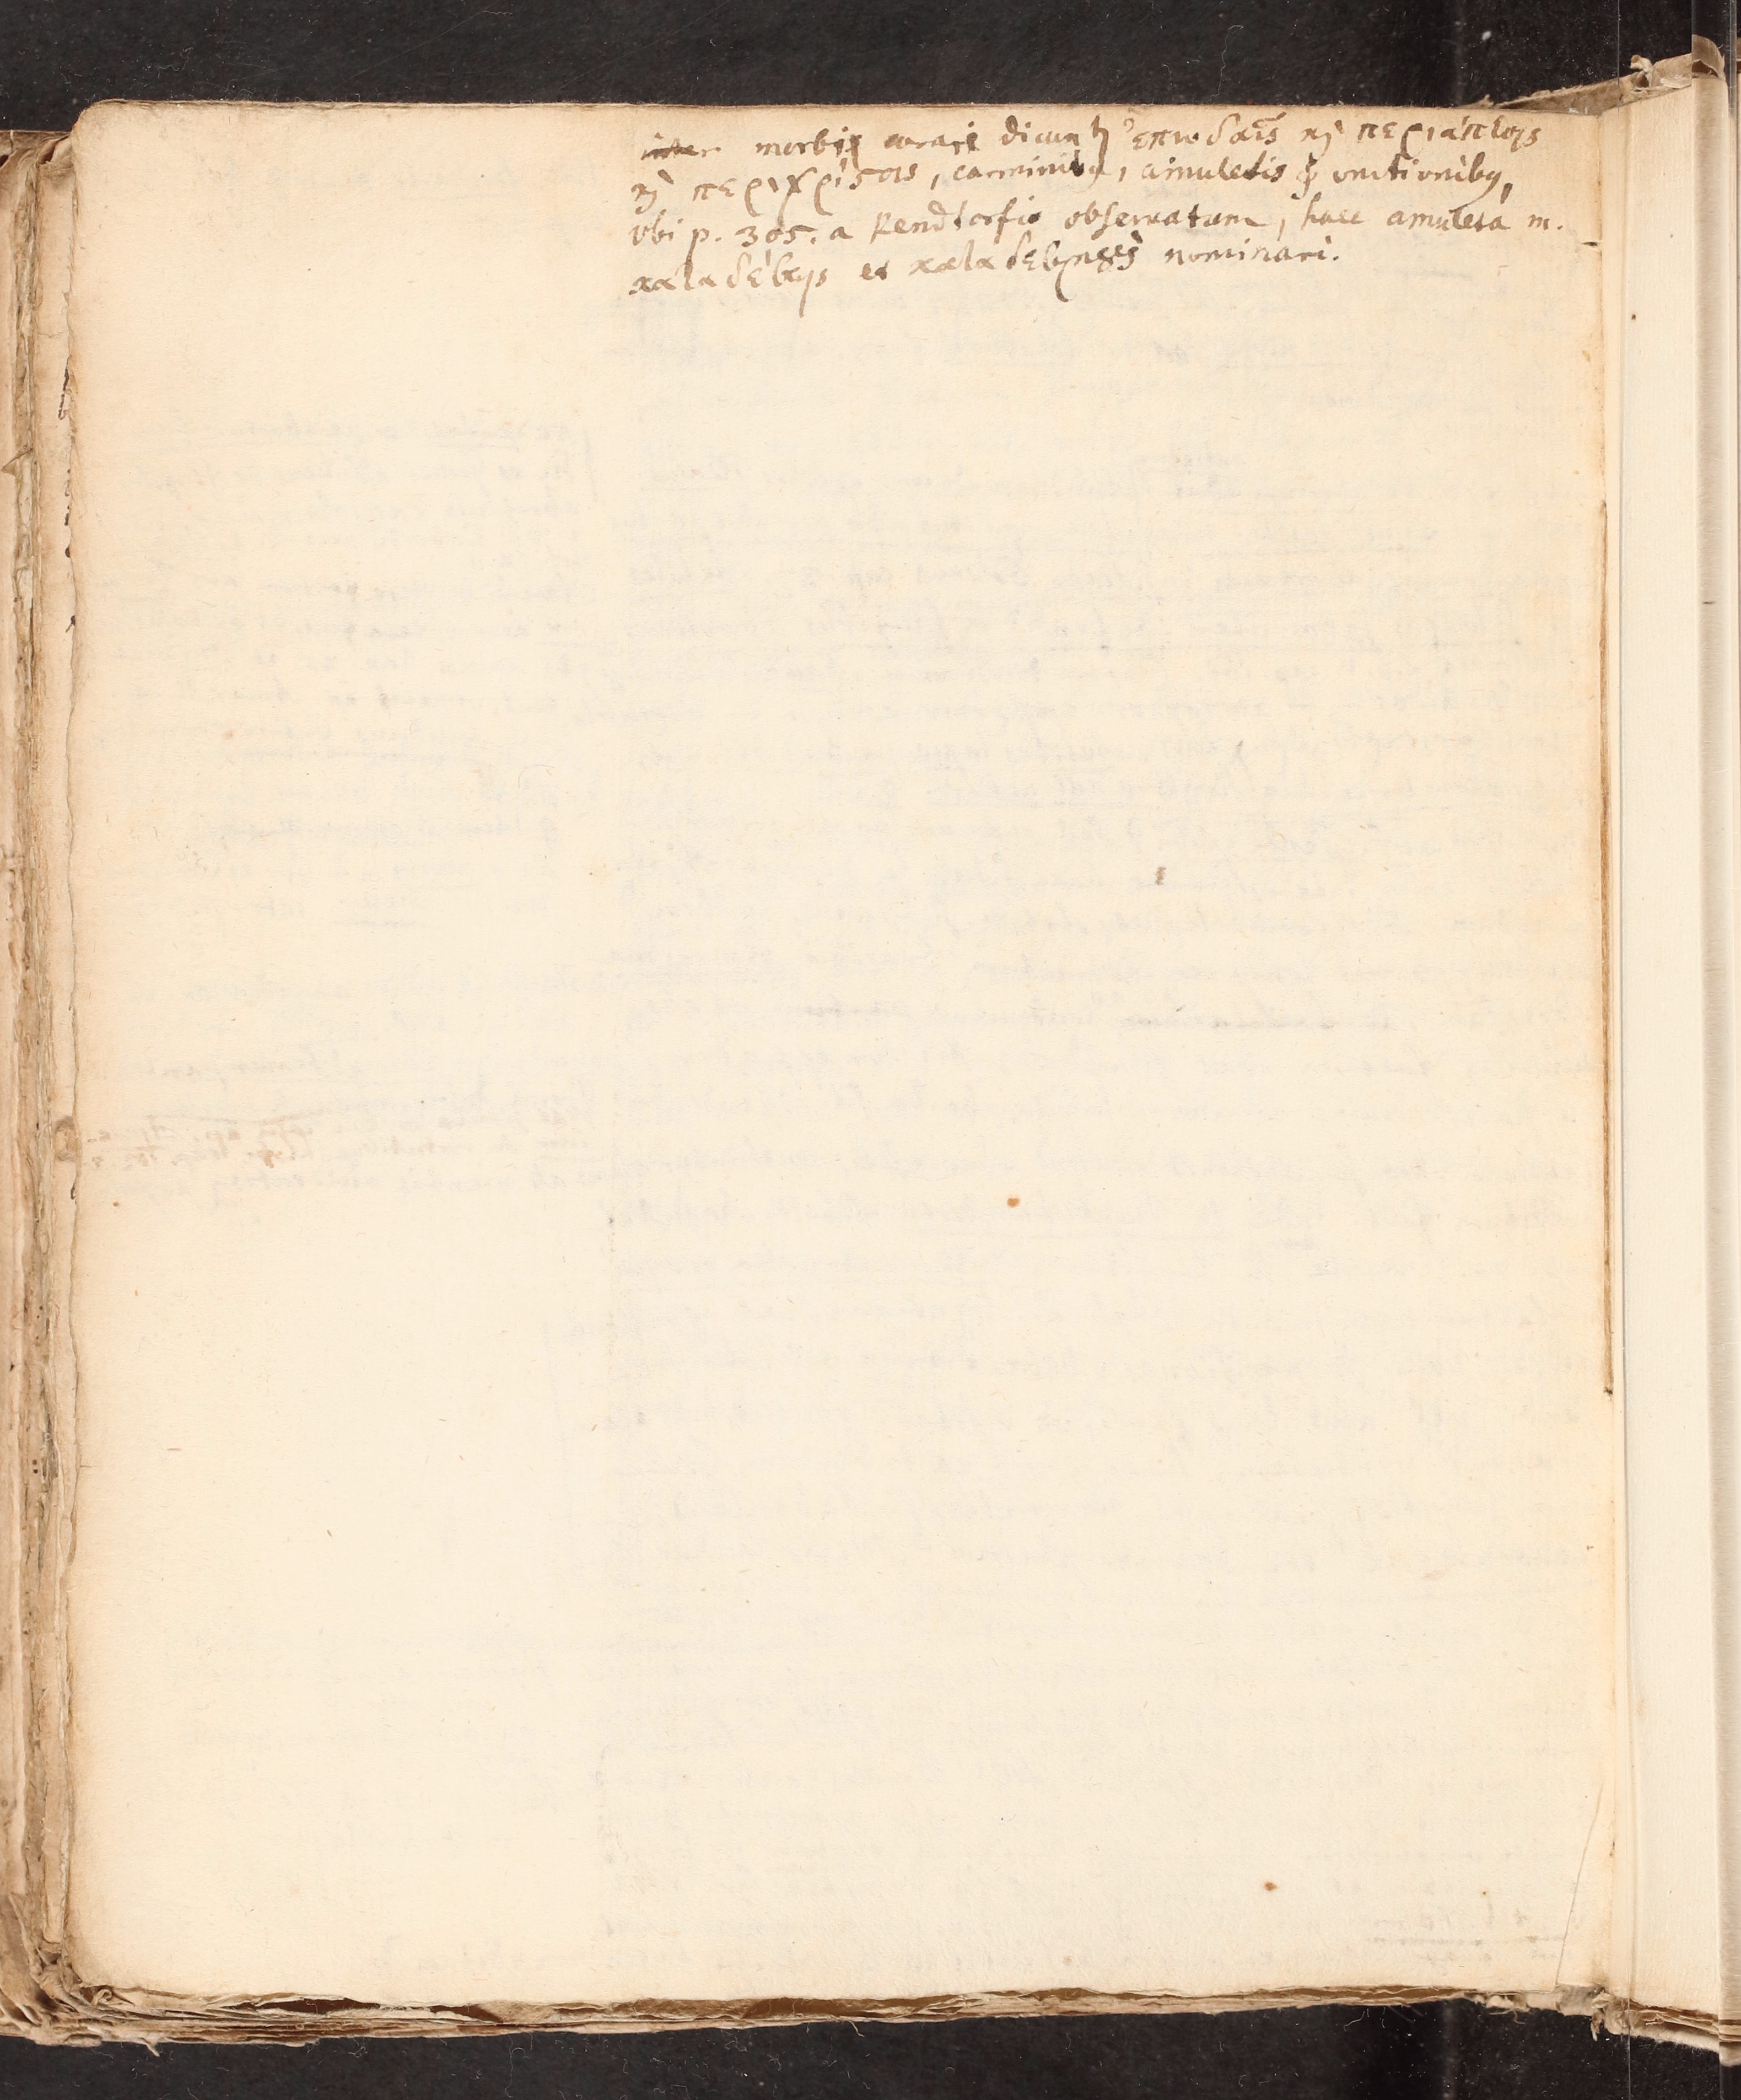 inter morbis curari dicuntur ἐπωδαῖς καὶ περιάπτοις
καὶ περιχρίστοις, carminibus, amuletis & unctionibus,
vbi p. 305. a Rendtorfio observatum, haec amuleta m.
καταδέτοις et nominari.